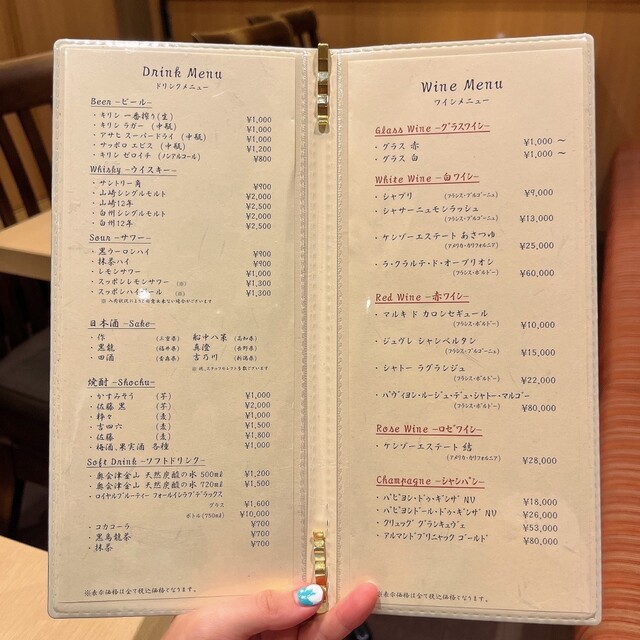 Drink Menu
ドリンクメニュー
Beer -ビール-
・キリン 一番搾り(生) ¥1,000
・キリン ラガー (中瓶) ¥1,000
・アサヒ スーパードライ (中瓶) ¥1,000
・サッポロ エビス (中瓶) ¥1,200
・キリン ゼロイチ (ノンアルコール) ¥800
Whisky -ウイスキー-
・サントリー角 ¥900
・山崎シングルモルト ¥2,000
・山崎12年 ¥2,500
・白州シングルモルト ¥2,000
・白州12年 ¥2,500
Sour -サワー-
・黒ウーロンハイ ¥900
・抹茶ハイ ¥900
・レモンサワー ¥1,000
・スッポンレモンサワー (※) ¥1,300
・スッポンハイボール (※) ¥1,300
※ 入荷状況により御意出来ない場合がございます
日本酒 -Sake-
・作 (三重県) 船中八策 (高知県)
・黒龍 (福井県) 真澄 (長野県)
・田酒 (青森県) 吉乃川 (新潟県)
※ 尚、スタッフセレクトも戴でございます
焼酎 -Shochu-
・かすみそう (芋) ¥1,000
・佐藤 黒 (芋) ¥2,000
・粋々 (麦) ¥1,000
・吉四六 (麦) ¥1,500
・佐藤 (麦) ¥1,800
・梅酒、果実酒 各種 ¥1,000
Soft Drink -ソフトドリンク-
・奥会津金山 天然炭酸の水 500ml ¥1,200
・奥会津金山 天然炭酸の水 720ml ¥1,500
・ロイヤルブルーティー フォールインラブ・ドラックス
グラス ¥1,600
ボトル(750ml) ¥10,000
・コカコーラ ¥700
・黒烏龍茶 ¥700
・抹茶 ¥700
※表示価格は全て税込価格でなります。
Wine Menu
ワインメニュー
Glass Wine -グラスワイン-
・グラス 赤 ¥1,000 〜
・グラス 白 ¥1,000 〜
White Wine -白ワイン-
・シャブリ (フランス・ブルゴーニュ) ¥9,000
・シャサーニュモンラッシュ
(フランス・ブルゴーニュ) ¥13,000
・ケンゾーエステート あさつゆ
(アメリカ・カリフォルニア) ¥25,000
・ラ・クラルテ・ド・オーブリオン
(フランス・ボルドー) ¥60,000
Red Wine -赤ワイン-
・マルキ ド カロンセギュール
(フランス・ボルドー) ¥10,000
・ジュヴレ シャンベルタン
(フランス・ブルゴーニュ) ¥15,000
・シャトー ラグランジュ
(フランス・ボルドー) ¥22,000
・パヴィヨン・ルージュ・デュ・シャトー・マルゴー
(フランス・ボルドー) ¥80,000
Rose Wine -ロゼワイン-
・ケンゾーエステート 結
(アメリカ・カリフォルニア) ¥28,000
Champagne -シャンパン-
・パピヨン・ドゥ・ギンザ NV ¥18,000
・パピヨンドール・ドゥ・ギンザ NV ¥26,000
・クリュッグ グランキュヴェ ¥53,000
・アルマンドブリニャック ゴールド ¥80,000
※表示価格は全て税込価格でなります。